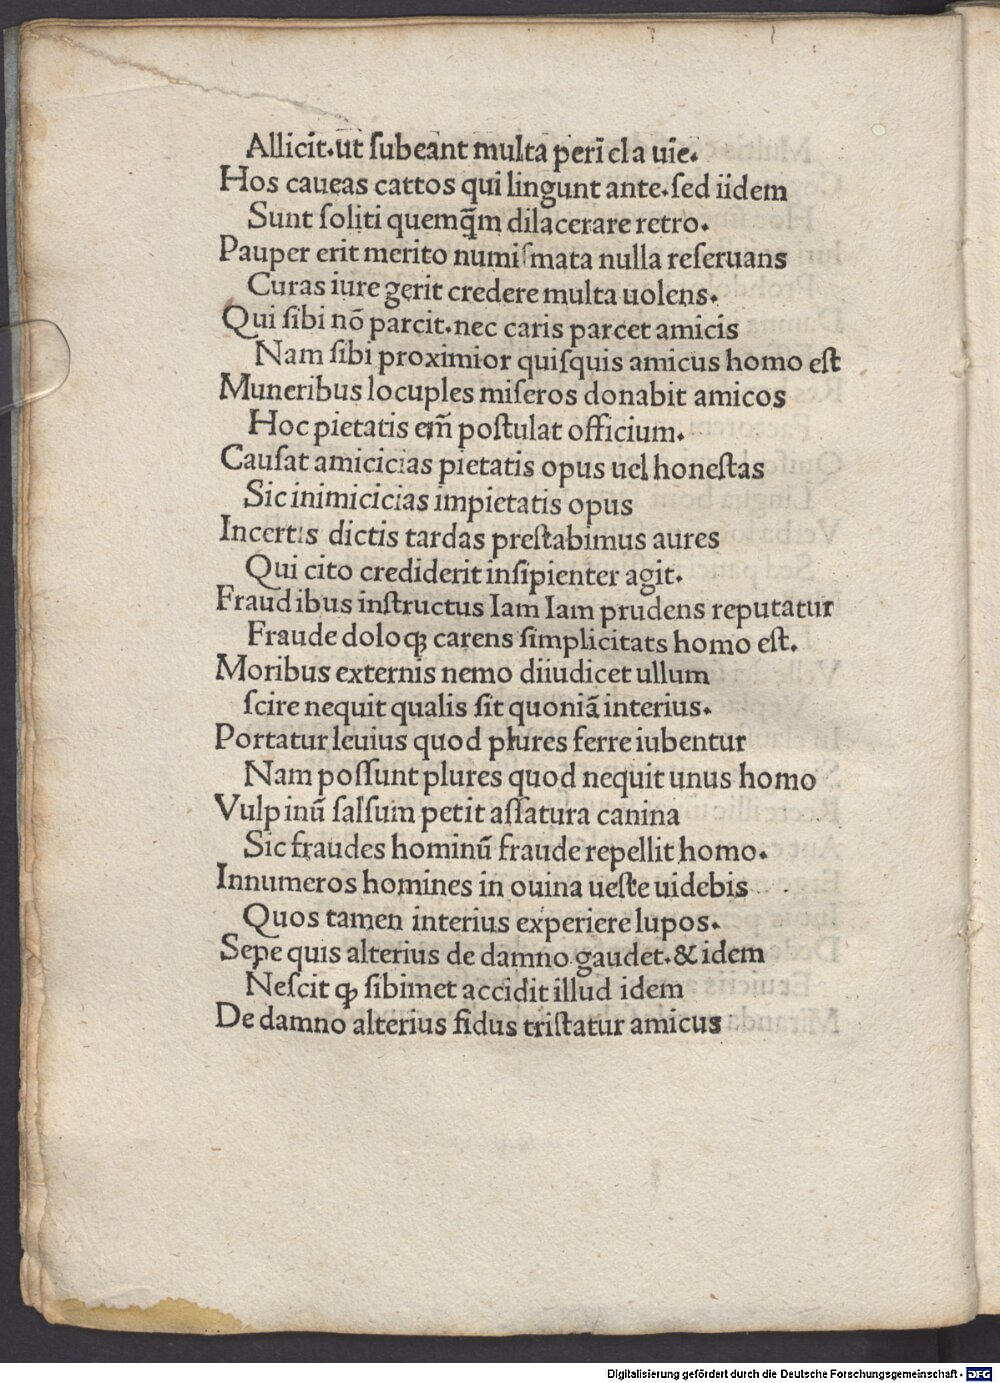 Allicit.ut ſubeant multa peri cl a uie.
Hos caueas cattos qui lingunt ante.ſed iidem
Sunt ſoliti quemq̄m dilacerare retro.
Pauper erit merito numiſmata nulla reſeruans
Curas iure gerit credere multa uolens.
Qui ſibi nō parcit.nec caris parcet amicis
Nam ſibi proximior quiſquis amicus homo eſt
Muneribus locuples miſeros donabit amicos
Hoc pietatis em̄ poſtulat officium.
Cauſat amicicias pietatis opus uel honeſtas
Sic inimicicias impietatis opus
Incertis dictis tardas preſtabimus aures
Qui cito crediderit inſipienter agit.
Fraudibus inſtructus Iam Iam prudens reputatur
Fraude doloqꝫ carens ſimplicitats homo eſt.
Moribus externis nemo diiudicet ullum
ſcire nequit qualis ſit quoniā interius.
Portatur leuius quod plures ferre iubentur
Nam poſſunt plures quod nequit unus homo
Vulpinū ſalſum petit aſſatura canina
Sic fraudes hominū fraude repellit homo.
Innumeros homines in ouina ueſte uidebis
Quos tamen interius experiere lupos.
Sepe quis alterius de damno gaudet.& idem
Neſcit qꝫ ſibimet accidit illud idem
De damno alterius fidus triſtatur amicus
Digitalisierung gefördert durch die Deutsche Forschungsgemeinschaft - DFG